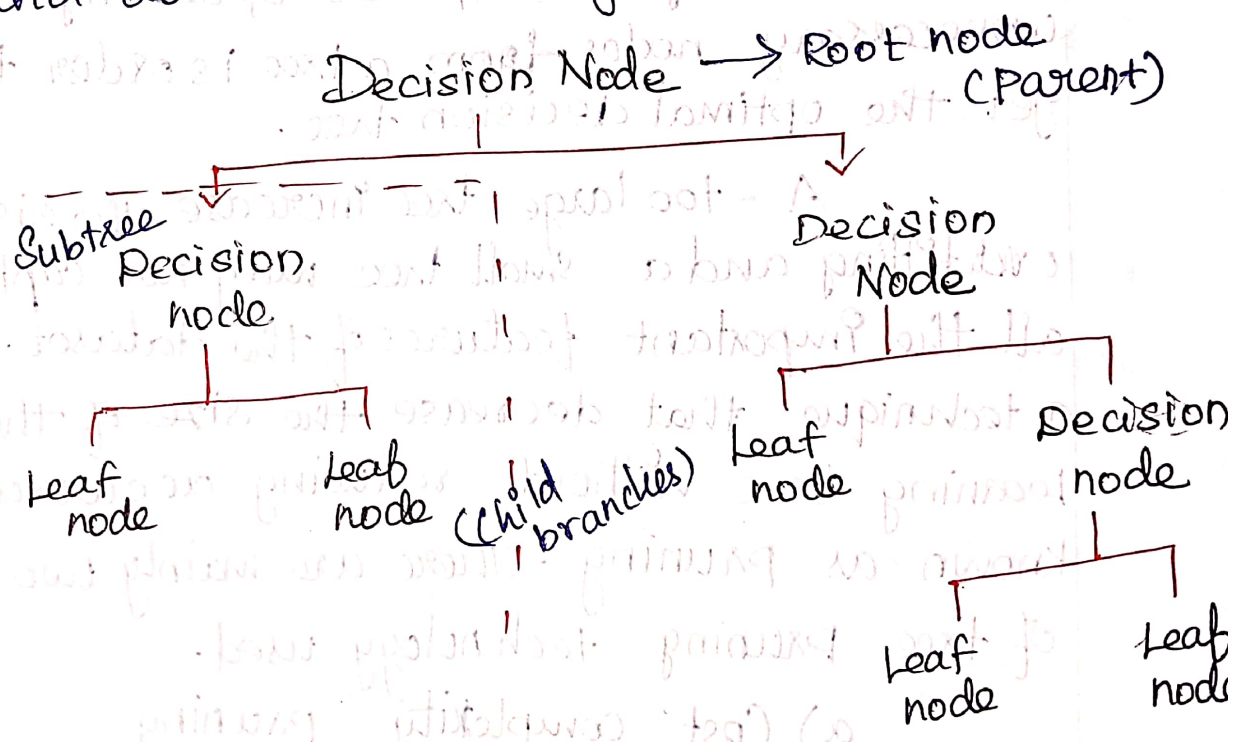 Decision Node → Root node
(Parent)
Subtree
Decision
node
Decision
Node
Leaf
node
Leaf
node
(Child
branches)
Leaf
node
Decision
node
Leaf
node
Leaf
node